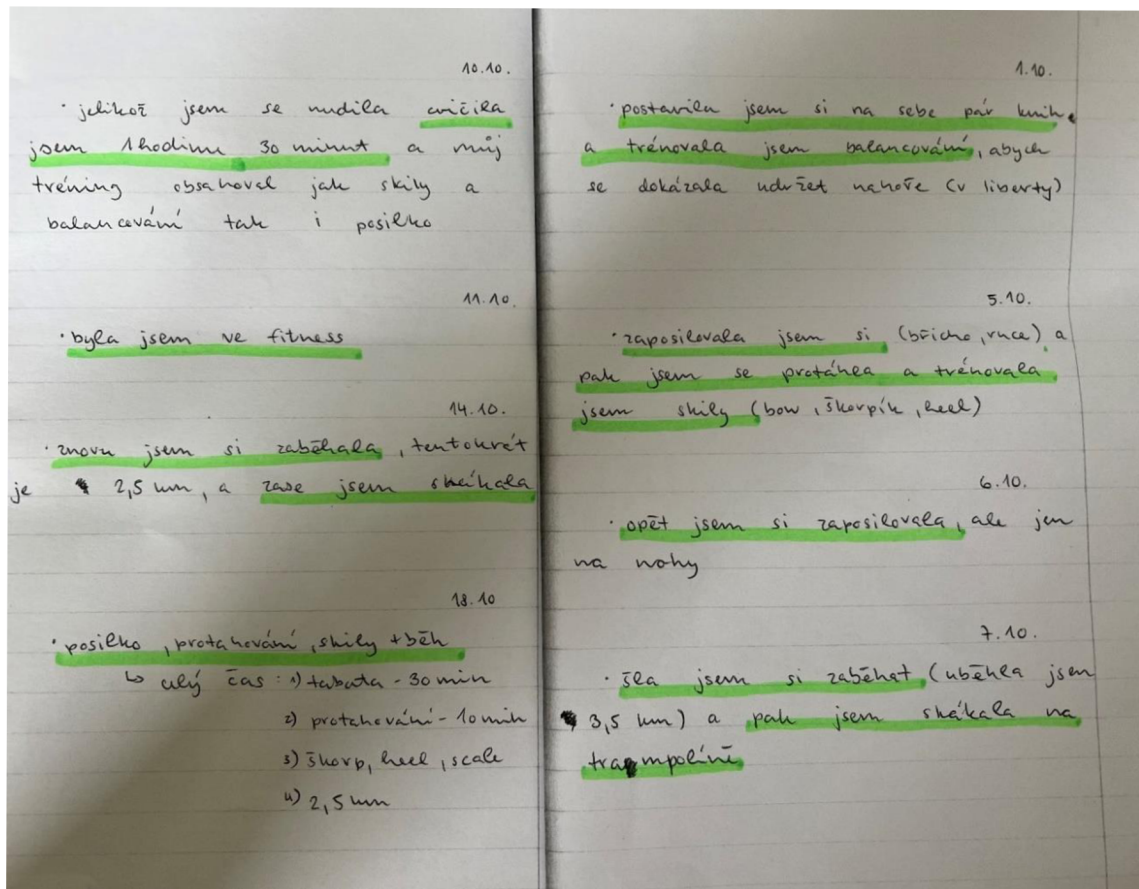 10.10.
· jelikož jsem se nudila cvičila
jsem 1 hodinu 30 minut a můj
tréning obsahoval jak skily a
balancování tak i posilko
11.10.
· byla jsem ve fitness
14.10.
· znovu jsem si zaběhala, tentokrát
je 2,5 km, a zase jsem skákala
18.10
· posilko, protahování, skily + běh
↳ celý čas: 1) tabata - 30 min
2) protahování - 10 min
3) škorp, heel, scale
4) 2,5 km
1.10.
· postavila jsem si na sebe pár knih
a trénovala jsem balancování, abych
se dokázala udržet nahoře (v liberty)
5.10.
· zaposilovala jsem si (břicho, ruce) a
pak jsem se protáhla a trénovala
jsem skily (bow, škorpík, heel)
6.10.
· opět jsem si zaposilovala, ale jen
na nohy
7.10.
· šla jsem si zaběhat (uběhla jsem
3,5 km) a pak jsem skákala na
trampolíně